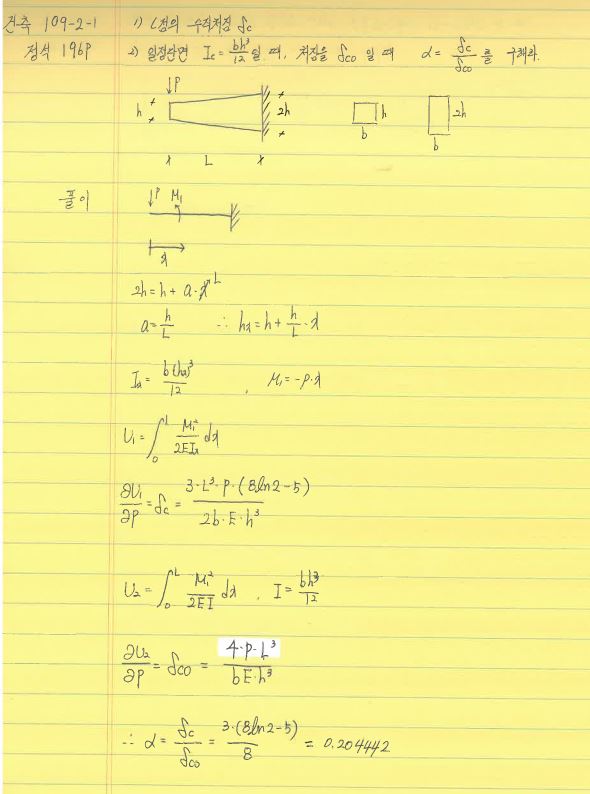 건축 109-2-1 1) C점의 수직처짐 δc
정석 196p 2) 일정단면 Ic = bh³/12 일 때, 처짐을 δco 일 때 α = δc/δco 를 구해라.
↓P
h 2h h 2h
b b
L
풀이 ↓P M₁
x
2h = h + a·x L
a = h/L ∴ hx = h + h/L · x
Ix = b(hx)³/12 , M₁ = -P·x
U₁ = ∫₀ᴸ M₁²/2EIx dx
∂U₁/∂P = δc = 3·L³·P·(8ln2-5)/2b·E·h³
U₂ = ∫₀ᴸ M₁²/2EI dx , I = bh³/12
∂U₂/∂P = δco = 4·P·L³/bE·h³
∴ α = δc/δco = 3·(8ln2-5)/8 = 0.204442